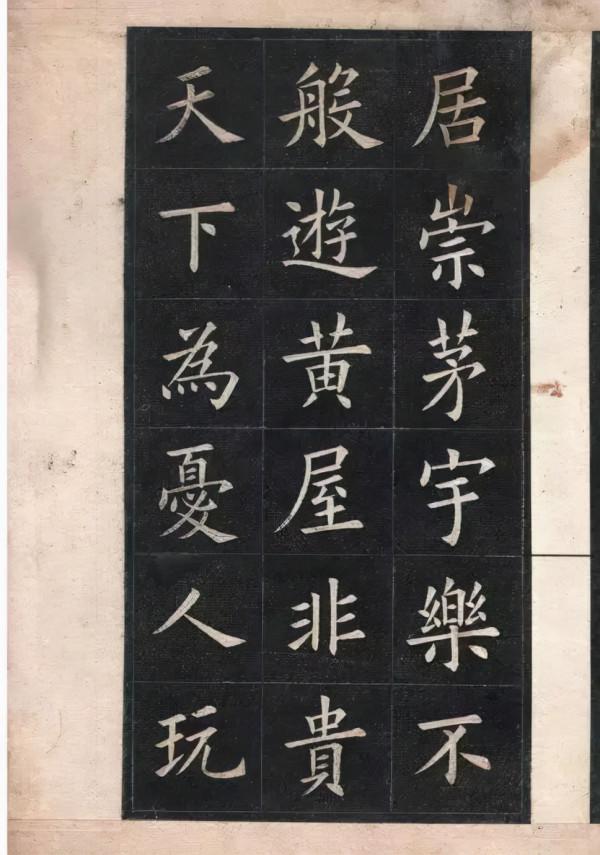 居崇茅宇樂不
般遊黃屋非貴
天下為憂人玩